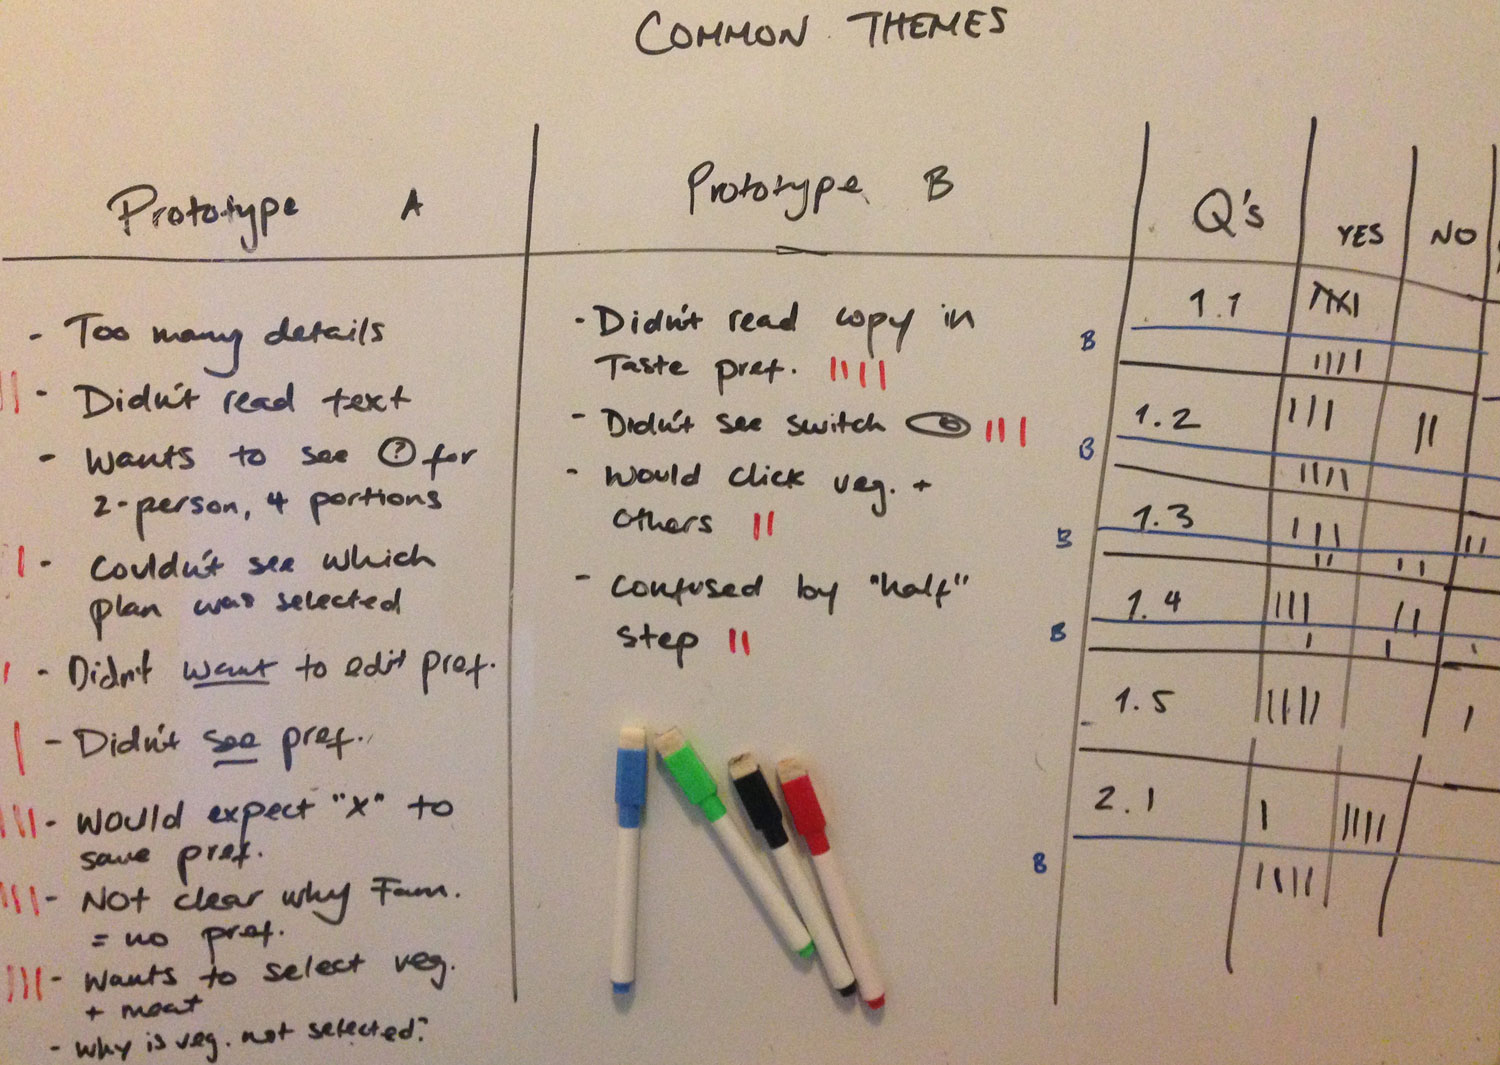 COMMON THEMES
Prototype A
- Too many details
- Didn't read text
- Wants to see ? for
2-person, 4 portions
- Couldn't see which
plan was selected
- Didn't want to edit pref.
- Didn't see pref.
- Would expect "X" to
save pref.
- Not clear why Fam.
= no pref.
- Wants to select veg.
+ meat
- Why is veg. not selected?
Prototype B
- Didn't read copy in
Taste pref.
- Didn't see switch
- Would click veg. +
others
- Confused by "half"
step
Q's YES NO
1.1
B
1.2
B
1.3
B
1.4
B
1.5
2.1
B